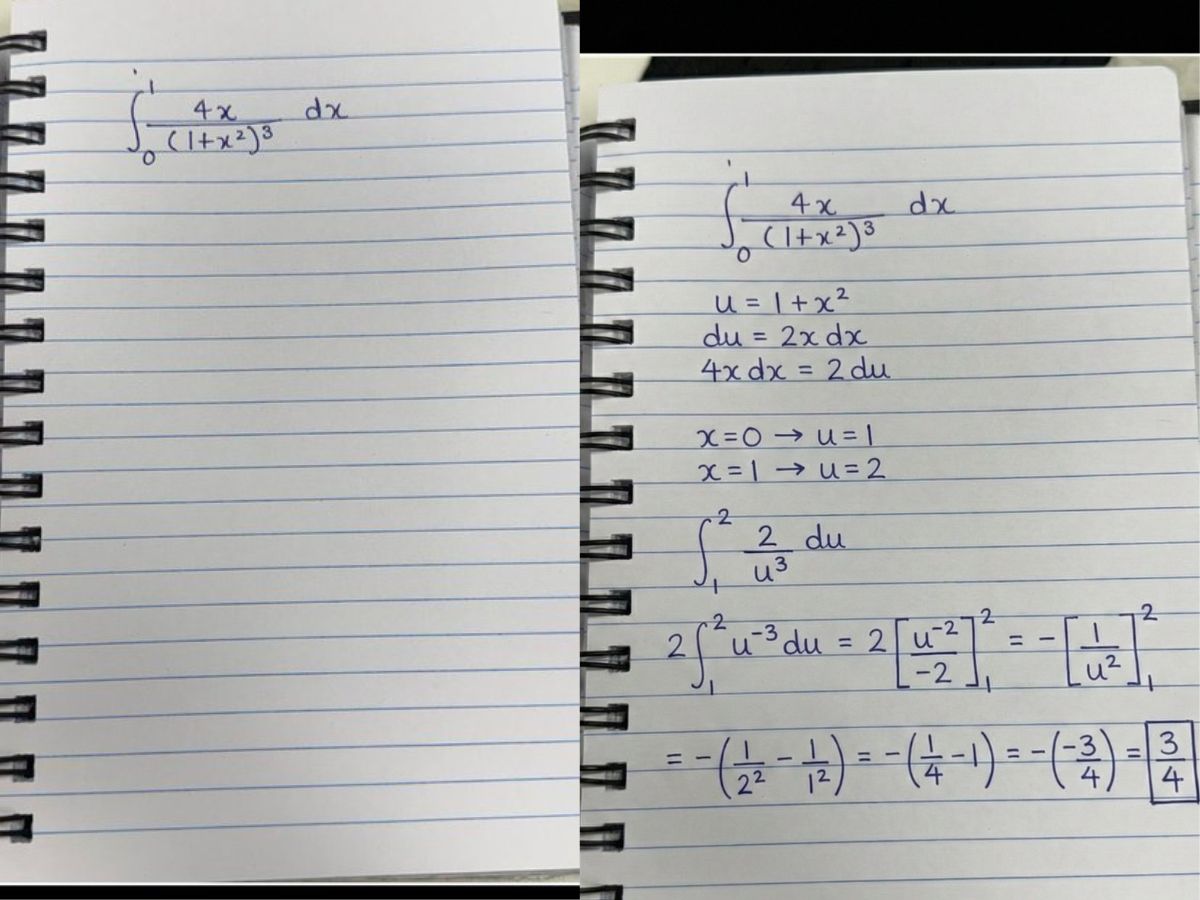 ∫₀¹ 4x/(1+x²)³ dx
∫₀¹ 4x/(1+x²)³ dx
u = 1+x²
du = 2x dx
4x dx = 2 du
x=0 → u=1
x=1 → u=2
∫₁² 2/u³ du
2∫₁² u⁻³ du = 2[u⁻²/-2]₁² = -[1/u²]₁²
= -(1/2² - 1/1²) = -(1/4 - 1) = -(-3/4) = 3/4